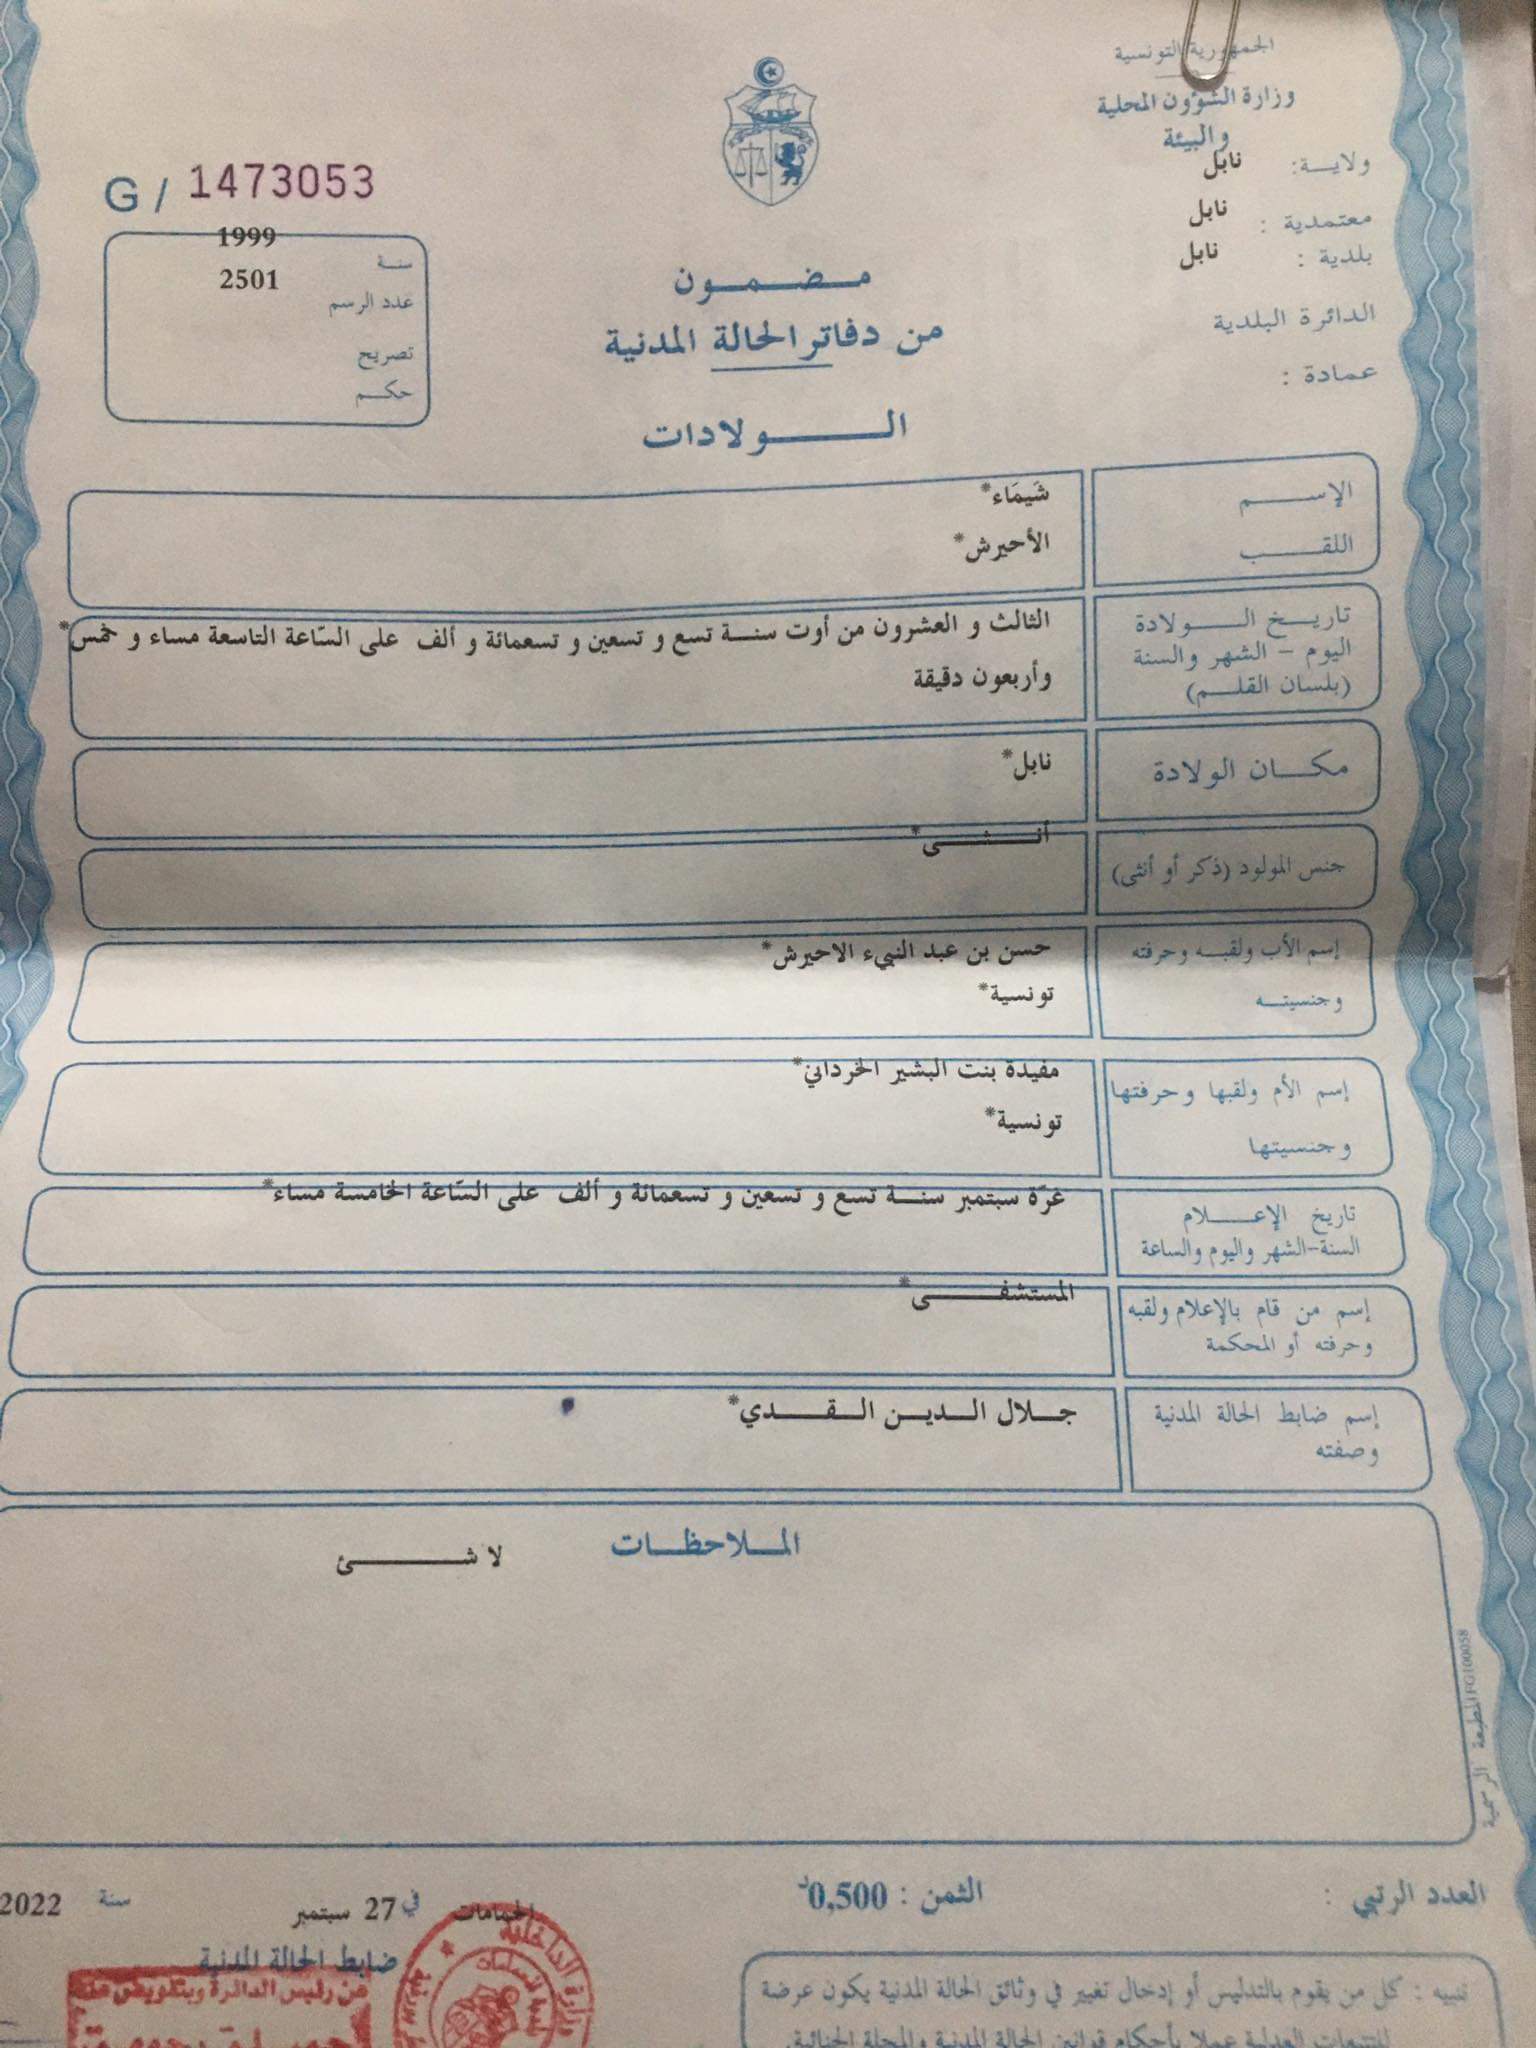 الجمهورية التونسية
وزارة الشؤون المحلية
والبيئة
ولايــة: نابل
معتمدية : نابل
بلدية : نابل
الدائرة البلدية
عمادة :
G / 1473053
سنة 1999
عدد الرسم 2501
تصريح
حكم
مضمون
من دفاتر الحالة المدنية
الولادات
الإسم شَيمَاء*
اللقب الأحيرش*
تاريخ الولادة
اليوم - الشهر والسنة
(بلسان القلم)
الثالث و العشرون من أوت سنة تسع و تسعين و تسعمائة و ألف على السّاعة التاسعة مساء و خمس*
وأربعون دقيقة
مكان الولادة نابل*
جنس المولود (ذكر أو أنثى) أنثى*
إسم الأب ولقبه وحرفته حسن بن عبد النبيء الاحيرش*
وجنسيته تونسية*
إسم الأم ولقبها وحرفتها مفيدة بنت البشير الخرداني*
وجنسيتها تونسية*
تاريخ الإعلام
السنة-الشهر واليوم والساعة
غرّة سبتمبر سنة تسع و تسعين و تسعمائة و ألف على السّاعة الخامسة مساء*
إسم من قام بالإعلام ولقبه
وحرفته أو المحكمة
المستشفى*
إسم ضابط الحالة المدنية
وصفته
جلال الدين النقدي*
الملاحظات
لا شئ
المطبعة الرسمية FG100058
العدد الرتبي :
الثمن : 0,500د
الحمامات في 27 سبتمبر سنة 2022
ضابط الحالة المدنية
عن رئيس الدائرة وبتفويض منه
وزارة الداخلية
تنبيه : كل من يقوم بالتدليس أو إدخال تغيير في وثائق الحالة المدنية يكون عرضة
للتتبعات العدلية عملا بأحكام قوانين الحالة المدنية والمجلة الجنائية.